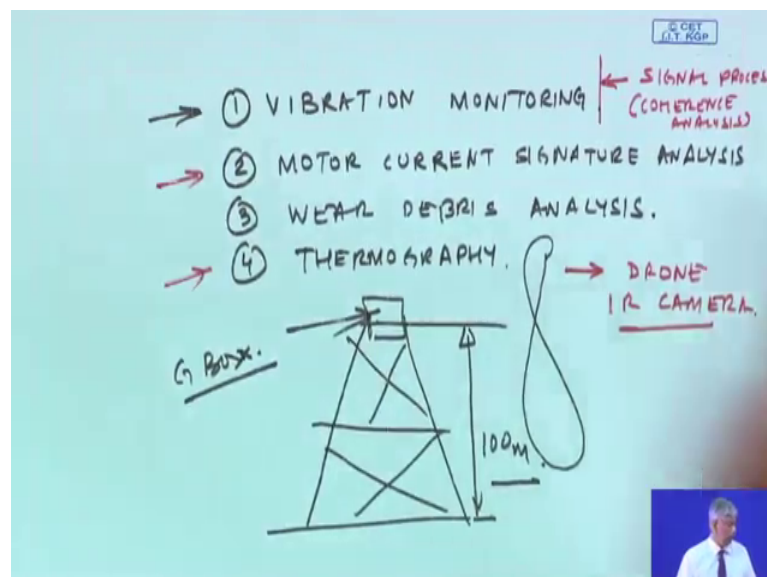 © CET
I.I.T. KGP
① VIBRATION MONITORING
← SIGNAL PROCES
(COHERENCE
ANALYSIS)
② MOTOR CURRENT SIGNATURE ANALYSIS
③ WEAR DEBRIS ANALYSIS.
④ THERMOGRAPHY.
→ DRONE
IR CAMERA.
G BOX.
100m.